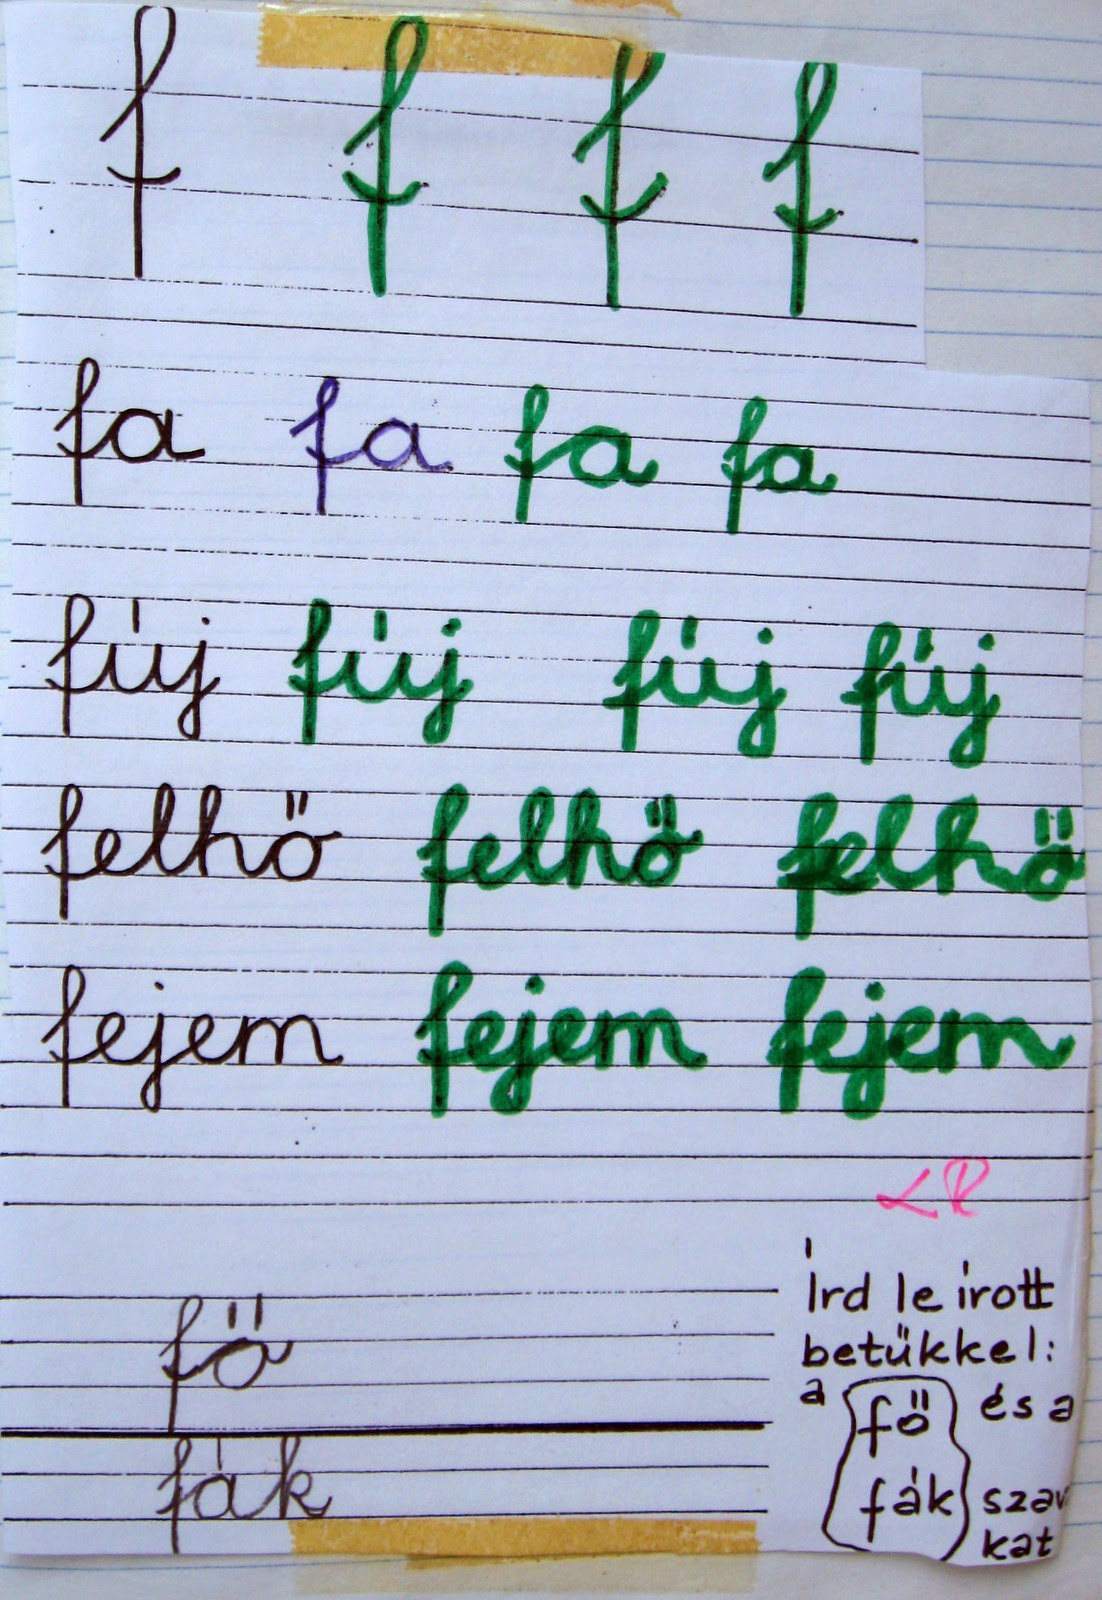 f f f f
fa fa fa fa
fúj fúj fúj fúj
felhő felhő felhő
fejem fejem fejem
LR
fő
fák
Írd le írott
betűkkel:
a fő és a
fák szava
kat